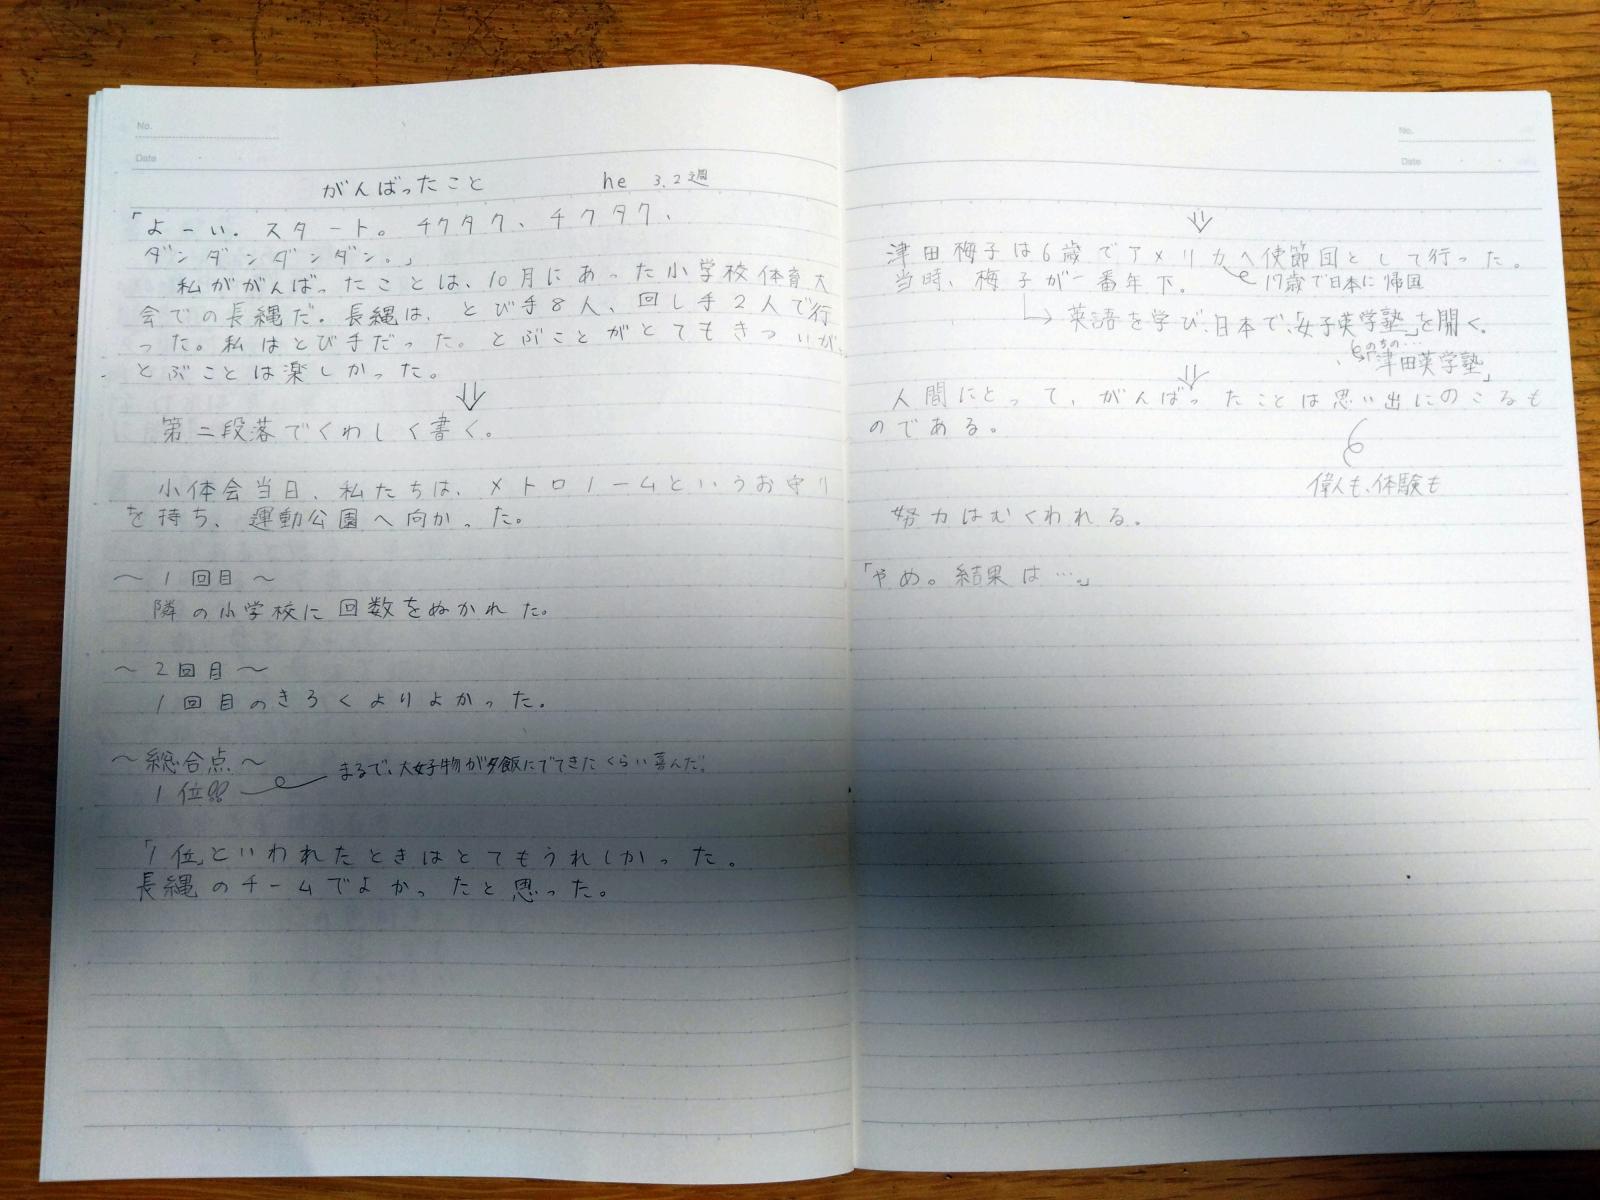 No.
Date
がんばったこと he 3.2週
「よーい.スタート。チクタク、チクタク、
ダンダンダンダンダン。」
私ががんばったことは、10月にあった小学校体育大
会での長縄だ。長縄は、とび手8人、回し手2人で行
った。私はとび手だった。とぶことがとてもきついが、
とぶことは楽しかった。
⇓
第二段落でくわしく書く。
小体会当日、私たちは、メトロノームというお守り
を持ち、運動公園へ向かった。
～1回目～
隣の小学校に回数をぬかれた。
～2回目～
1回目のきろくよりよかった。
～総合点～
まるで、大好物が夕飯にでてきたくらい喜んだ。
1位!!
「1位」といわれたときはとてもうれしかった。
長縄のチームでよかったと思った。
No.
Date
⇓
津田梅子は6歳でアメリカへ使節団として行った。
当時、梅子が一番年下。 17歳で日本に帰国
→英語を学び、日本で、「女子英学塾」を開く。
のちの…
「津田英学塾」
⇓
人間にとって、がんばったことは思い出にのこるも
のである。
偉人も、体験も
努力はむくわれる。
「やめ。結果は…。」